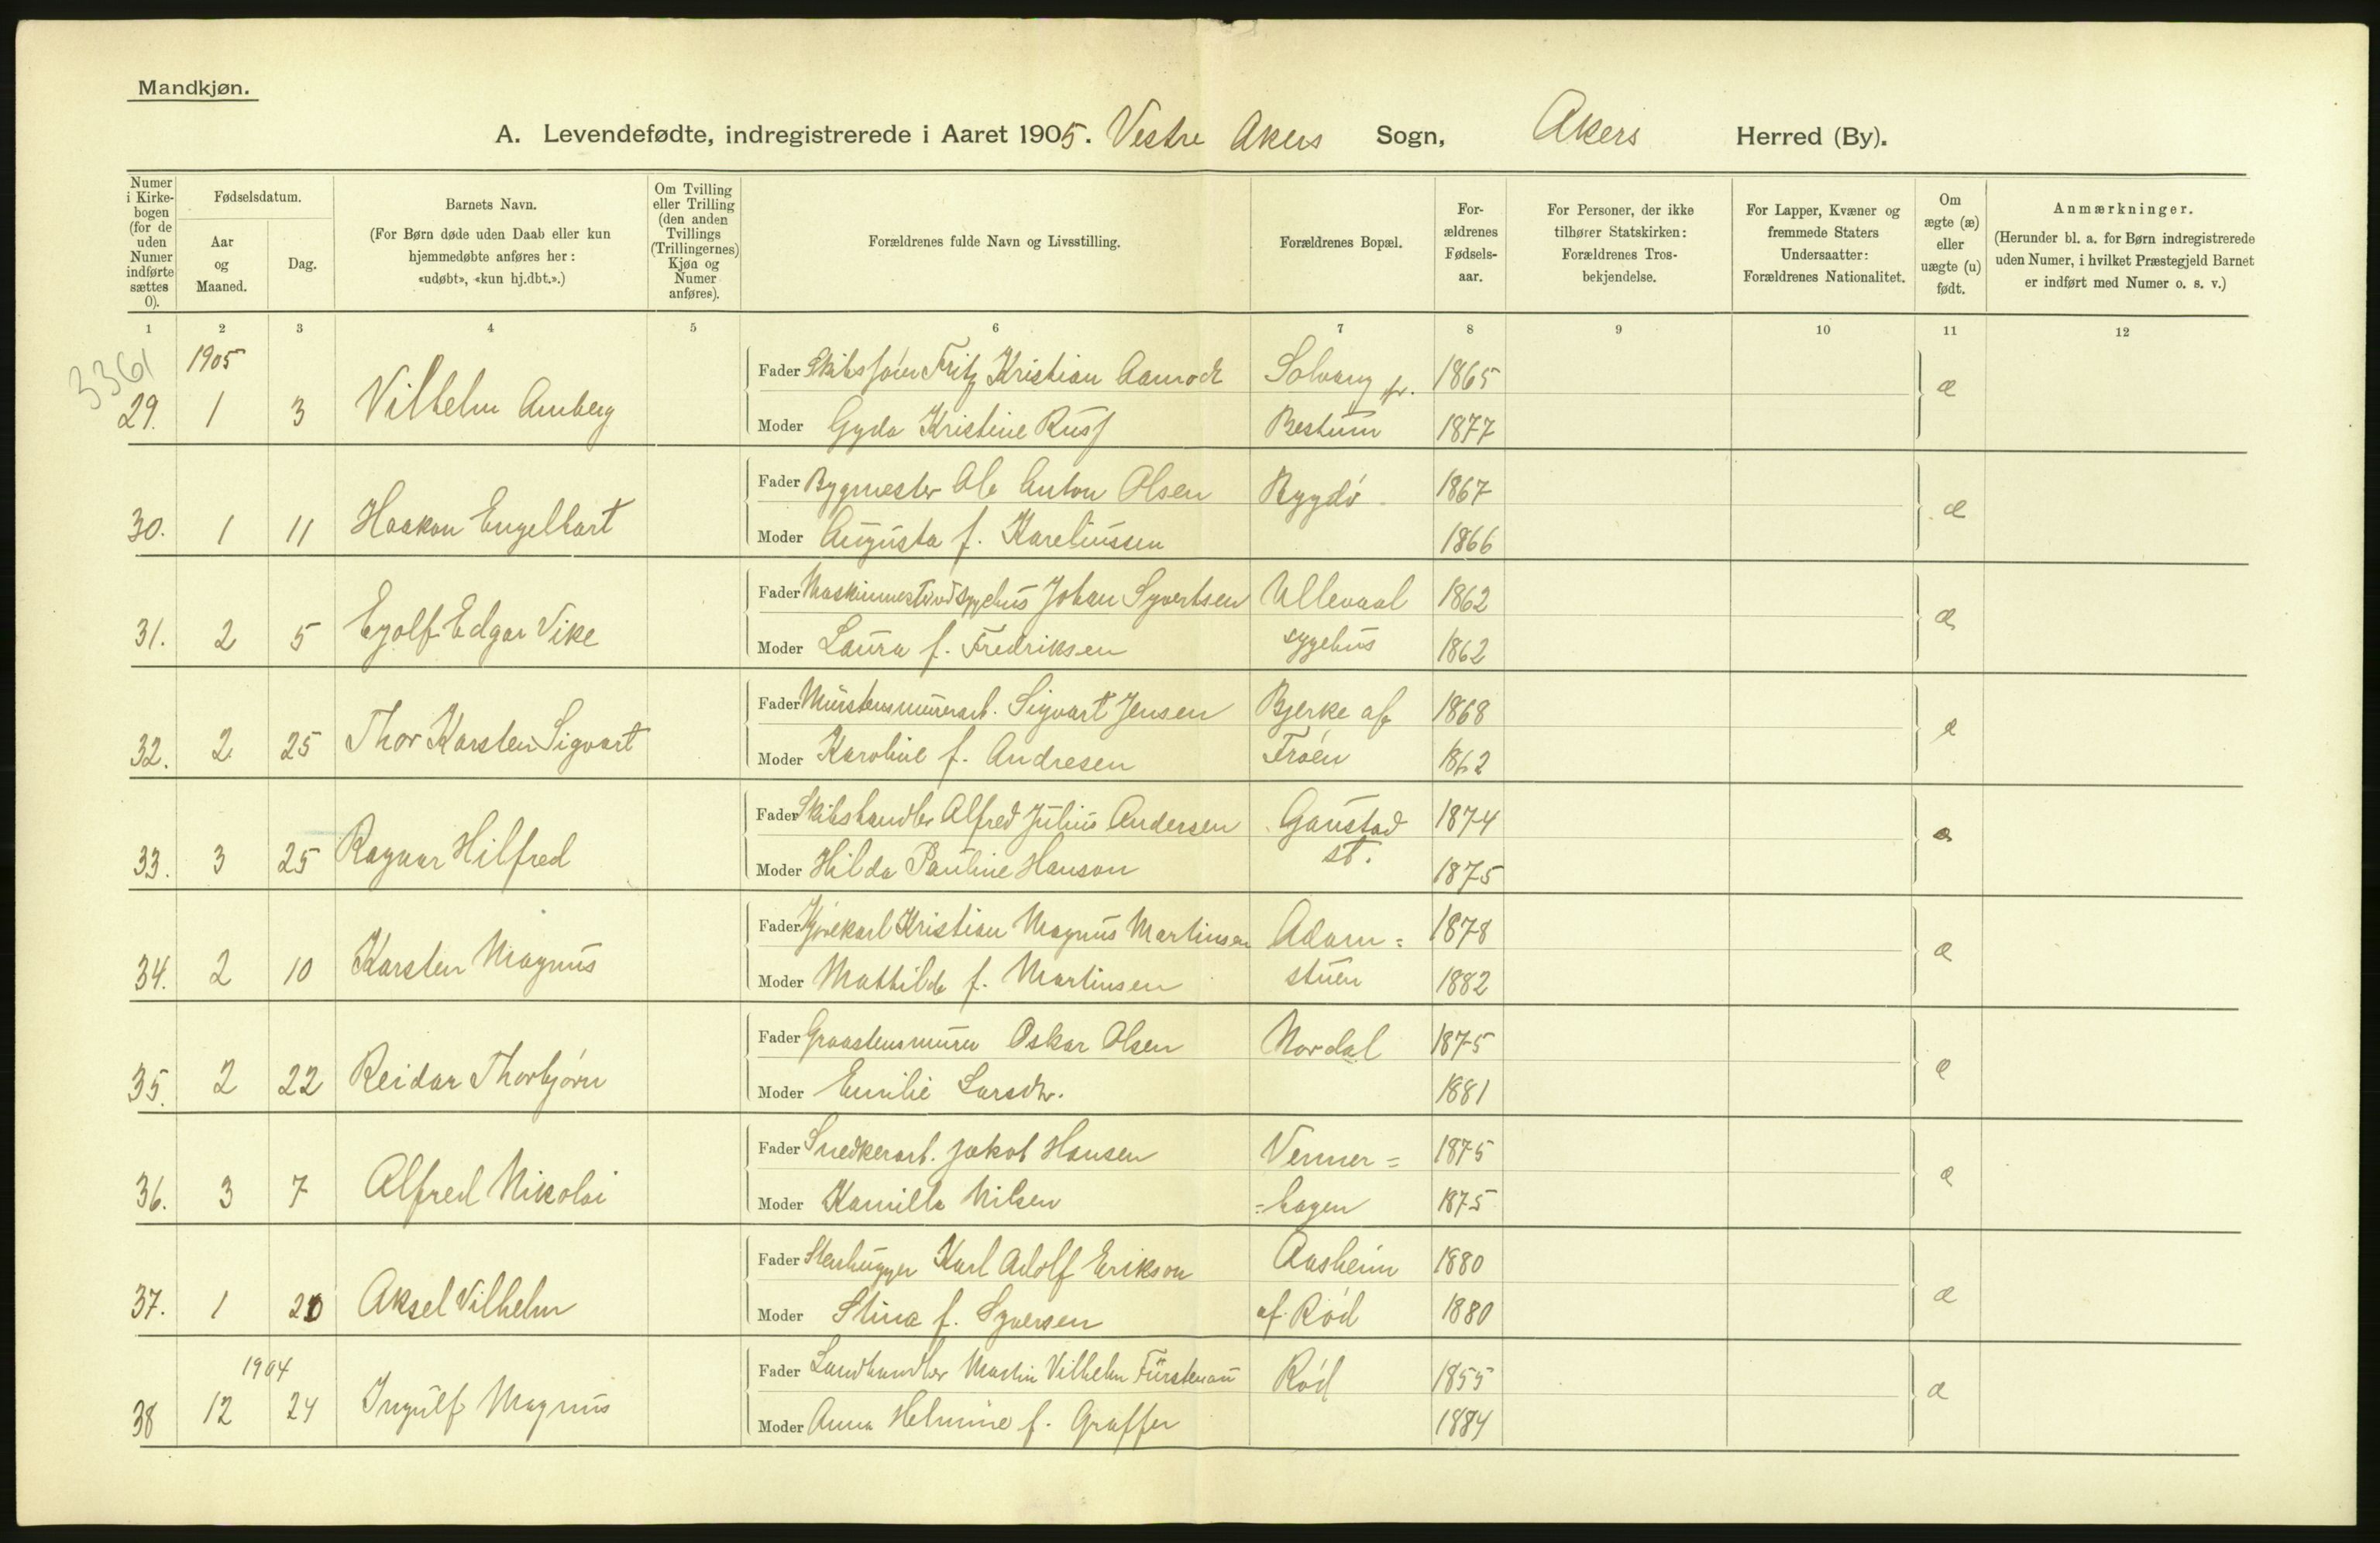 Mandkjøn.
A. Levendefødte, indregistrerede i Aaret 1905. Vestre Akers Sogn, Akers Herred (By).
Numer i Kirke-bogen (for de uden Numer indførte sættes 0).
Fødselsdatum.
Aar og Maaned.
Dag.
Barnets Navn.
(For Børn døde uden Daab eller kun hjemmedøbte anføres her: «udøbt», «kun hj.dbt.».)
Om Tvilling eller Trilling (den anden Tvillings (Trillingernes) Kjøn og Numer anføres).
Forældrenes fulde Navn og Livsstilling.
Forældrenes Bopæl.
For-ældrenes Fødsels-aar.
For Personer, der ikke tilhører Statskirken: Forældrenes Tros-bekjendelse.
For Lapper, Kvæner og fremmede Staters Undersaatter: Forældrenes Nationalitet.
Om ægte (æ) eller uægte (u) født.
Anmærkninger.
(Herunder bl. a. for Børn indregistrerede uden Numer, i hvilket Præstegjeld Barnet er indført med Numer o. s. v.)
1 2 3 4 5 6 7 8 9 10 11 12
3361
1905
Fader Fritz Kristian Solvang pr. 1865
29. 1 3 Vilhelm Amberg æ
Moder Gyda Kristine Bestum 1877
Fader Bygmester Ole Anton Olsen Bygdö 1867
30. 1 11 Haakon Engelhart æ
Moder Augusta f. Kareliussen 1866
Fader Johan Syvertsen Ullevaal 1862
31. 2 5 Eyolf Edgar Vike æ
Moder Laura f. Fredriksen sygehus 1862
Fader Murstensmurerarb. Sigvart Jensen Bjerke af 1868
32. 2 25 Thor Karsten Sigvart æ
Moder Karoline f. Andresen Fröen 1862
Fader Skibshandler Alfred Julius Andersen Gaustad 1874
33. 3 25 Ragnar Hilfred æ
Moder Hilda Pauline Hanson st. 1875
Fader Kjörekarl Kristian Magnus Martinsen Adam= 1878
34. 2 10 Karsten Magnus æ
Moder Mathilde f. Martinsen stuen 1882
Fader Graastensmurer Oskar Olsen Nordal 1875
35. 2 22 Reidar Thorbjörn æ
Moder Emilie Larsdtr. 1881
Fader Snedkerarb. Jakob Hansen Venner= 1875
36. 3 7 Alfred Nikolai æ
Moder Kamilla Nilsen =hagen 1875
Fader Stenhugger Karl Adolf Erikson Aasheim 1880
37. 1 20 Aksel Vilhelm æ
Moder Stina f. Syversen af Röd 1880
1904
Fader Landhandler Martin Vilhelm Fürstenau Röd 1855
38 12 24 Ingulf Magnus æ
Moder Anna Helmine f. Graffer 1884